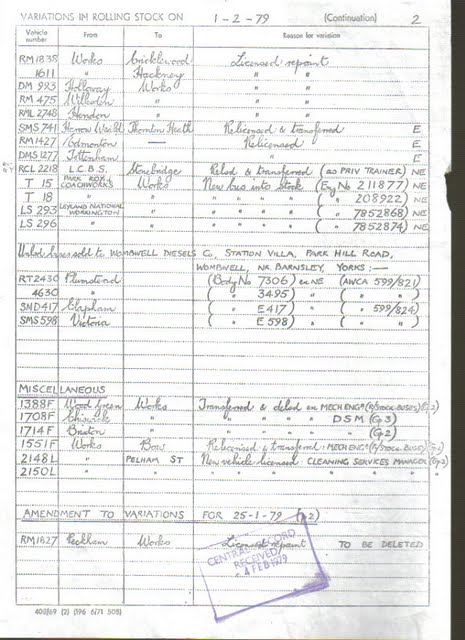 VARIATIONS IN ROLLING STOCK ON 1-2-79 (Continuation) 2
Vehicle number From To Reason for variation
RM1838 Works Cricklewood Licensed repaint
1611 " Hackney " "
DM 993 Holloway Works " "
RM 475 Willesden " " "
RML 2748 Hendon " " "
SMS 741 Harrow Weald Thornton Heath Relicensed & transferred E
RM1427 Edmonton — Relicensed E
DMS 1277 Tottenham " E
RCL 2218 L.C.B.S. Stonebridge Relsd & transferred (as PRIV TRAINER) NE
T 15 PARK ROYAL COACHWORKS Works New bus into stock (Eng No 211877) NE
T 18 " " " " " " ( " 208922) NE
LS 293 LEYLAND NATIONAL WORKINGTON " " " " " ( " 7852868) NE
LS 296 " " " " " " ( " 7852874) NE
buses sold to WOMBWELL DIESELS Co, STATION VILLA, PARK HILL ROAD,
WOMBWELL, NR. BARNSLEY, YORKS:—
RT2430 Plumstead (Body No 7306) ex NE (AWCA 599/821)
4630 " ( " 3495) " ( " " )
SHD417 Clapham ( " E417) " ( " 599/824)
SMS598 Victoria ( " E598) " ( " " )
MISCELLANEOUS
1388F Wood Green Works Transferred & delsd ex MECH ENGR (R/STOCK-BUSES) (Gp 2)
1708F Chiswick " " " " DSM (Gp 3)
1714F Brixton " " " " " (Gp 2)
1551F Works Bow Relicensed & transferred MECH ENGR (R/STOCK-BUSES)
2148L " PELHAM ST New vehicle licensed CLEANING SERVICES MANAGER
2150L " " " " "
AMENDMENT TO VARIATIONS FOR 25-1-79 (p2)
RM1627 Peckham Works Licensed repaint TO BE DELETED
CENTRAL RECORD
RECEIVED
4 FEB 1979